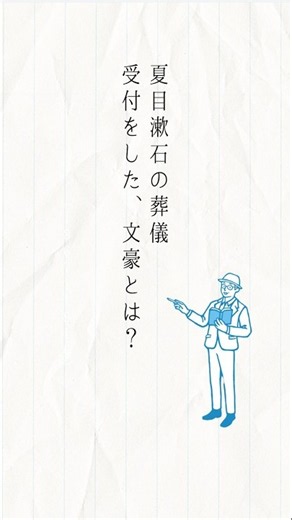 夏目漱石の葬儀
受付をした、文豪とは?